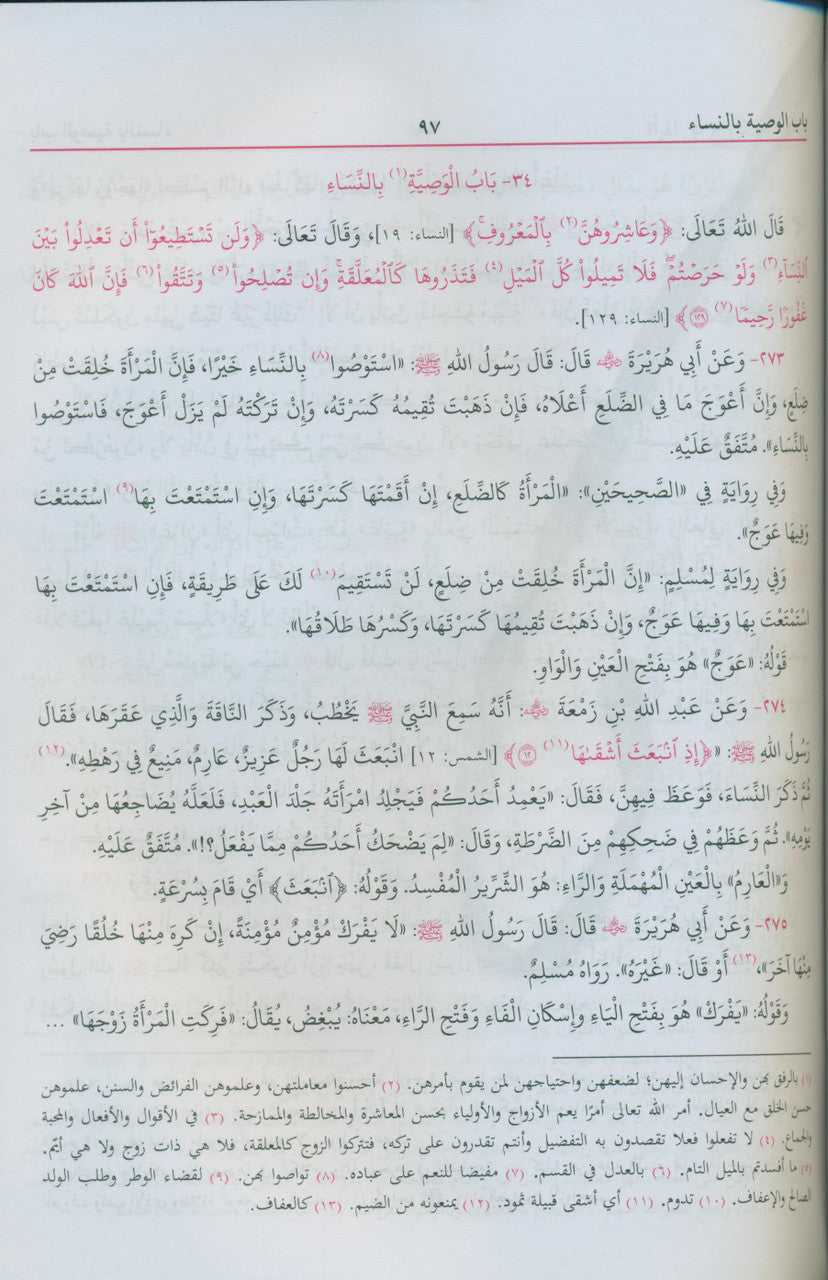 باب الوصية بالنساء ٩٧
٣٤- بَابُ الْوَصِيَّةِ(١) بِالنِّسَاءِ
قَالَ اللهُ تَعَالَى: ﴿وَعَاشِرُوهُنَّ(٢) بِٱلْمَعْرُوفِۚ﴾ [النساء: ١٩]، وَقَالَ تَعَالَى: ﴿وَلَن تَسْتَطِيعُوٓا۟ أَن تَعْدِلُوا۟ بَيْنَ
ٱلنِّسَآءِ(٣) وَلَوْ حَرَصْتُمْۖ فَلَا تَمِيلُوا۟ كُلَّ ٱلْمَيْلِ(٤) فَتَذَرُوهَا كَٱلْمُعَلَّقَةِۚ وَإِن تُصْلِحُوا۟(٥) وَتَتَّقُوا۟(٦) فَإِنَّ ٱللَّهَ كَانَ
غَفُورًا رَّحِيمًا(٧) ۝١٢٩﴾ [النساء: ١٢٩].
٢٧٣- وَعَنْ أَبِي هُرَيْرَةَ رضي الله عنه قَالَ: قَالَ رَسُولُ اللهِ ﷺ: «اسْتَوْصُوا(٨) بِالنِّسَاءِ خَيْرًا، فَإِنَّ الْمَرْأَةَ خُلِقَتْ مِنْ
ضِلَعٍ، وَإِنَّ أَعْوَجَ مَا فِي الضِّلَعِ أَعْلَاهُ، فَإِنْ ذَهَبْتَ تُقِيمُهُ كَسَرْتَهُ، وَإِنْ تَرَكْتَهُ لَمْ يَزَلْ أَعْوَجَ، فَاسْتَوْصُوا
بِالنِّسَاءِ». مُتَّفَقٌ عَلَيْهِ.
وَفِي رِوَايَةٍ فِي «الصَّحِيحَيْنِ»: «الْمَرْأَةُ كَالضِّلَعِ، إِنْ أَقَمْتَهَا كَسَرْتَهَا، وَإِنِ اسْتَمْتَعْتَ بِهَا(٩) اسْتَمْتَعْتَ
وَفِيهَا عَوَجٌ».
وَفِي رِوَايَةٍ لِمُسْلِمٍ: «إِنَّ الْمَرْأَةَ خُلِقَتْ مِنْ ضِلَعٍ، لَنْ تَسْتَقِيمَ(١٠) لَكَ عَلَى طَرِيقَةٍ، فَإِنِ اسْتَمْتَعْتَ بِهَا
اسْتَمْتَعْتَ بِهَا وَفِيهَا عَوَجٌ، وَإِنْ ذَهَبْتَ تُقِيمُهَا كَسَرْتَهَا، وَكَسْرُهَا طَلَاقُهَا».
قَوْلُهُ: «عَوَجٌ» هُوَ بِفَتْحِ الْعَيْنِ وَالْوَاوِ.
٢٧٤- وَعَنْ عَبْدِ اللهِ بْنِ زَمْعَةَ رضي الله عنه: أَنَّهُ سَمِعَ النَّبِيَّ ﷺ يَخْطُبُ، وَذَكَرَ النَّاقَةَ وَالَّذِي عَقَرَهَا، فَقَالَ
رَسُولُ اللهِ ﷺ: «﴿إِذِ ٱنۢبَعَثَ أَشْقَىٰهَا(١١) ۝١٢﴾ [الشمس: ١٢] انْبَعَثَ لَهَا رَجُلٌ عَزِيزٌ، عَارِمٌ، مَنِيعٌ فِي رَهْطِهِ».(١٢)
ثُمَّ ذَكَرَ النِّسَاءَ، فَوَعَظَ فِيهِنَّ، فَقَالَ: «يَعْمِدُ أَحَدُكُمْ فَيَجْلِدُ امْرَأَتَهُ جَلْدَ الْعَبْدِ، فَلَعَلَّهُ يُضَاجِعُهَا مِنْ آخِرِ
يَوْمِهِ». ثُمَّ وَعَظَهُمْ فِي ضَحِكِهِمْ مِنَ الضَّرْطَةِ، وَقَالَ: «لِمَ يَضْحَكُ أَحَدُكُمْ مِمَّا يَفْعَلُ؟!». مُتَّفَقٌ عَلَيْهِ.
وَ«الْعَارِمُ» بِالْعَيْنِ الْمُهْمَلَةِ وَالرَّاءِ: هُوَ الشِّرِّيرُ الْمُفْسِدُ. وَقَوْلُهُ: ﴿ٱنۢبَعَثَ﴾ أَيْ قَامَ بِسُرْعَةٍ.
٢٧٥- وَعَنْ أَبِي هُرَيْرَةَ رضي الله عنه قَالَ: قَالَ رَسُولُ اللهِ ﷺ: «لَا يَفْرَكْ مُؤْمِنٌ مُؤْمِنَةً، إِنْ كَرِهَ مِنْهَا خُلُقًا رَضِيَ
مِنْهَا آخَرَ»،(١٣) أَوْ قَالَ: «غَيْرَهُ». رَوَاهُ مُسْلِمٌ.
وَقَوْلُهُ: «يَفْرَكْ» هُوَ بِفَتْحِ الْيَاءِ وَإِسْكَانِ الْفَاءِ وَفَتْحِ الرَّاءِ، مَعْنَاهُ: يُبْغِضُ، يُقَالُ: «فَرِكَتِ الْمَرْأَةُ زَوْجَهَا» ...
(١) بالرفق بهن والإحسان إليهن؛ لضعفهن واحتياجهن لمن يقوم بأمرهن. (٢) أحسنوا معاملتهن، وعلموهن الفرائض والسنن، علموهن
حسن الخلق مع العيال. أمر الله تعالى أمرًا يعم الأزواج والأولياء بحسن المعاشرة والمخالطة والممازحة. (٣) في الأقوال والأفعال والمحبة
والجماع. (٤) لا تفعلوا فعلا تقصدون به التفضيل وأنتم تقدرون على تركه، فتتركوا الزوج كالمعلقة، فلا هي ذات زوج ولا هي أيّم.
(٥) ما أفسدتم بالميل التام. (٦) بالعدل في القسم. (٧) مفيضا للنعم على عباده. (٨) تواصوا بهن. (٩) لقضاء الوطر وطلب الولد
الصالح والإعفاف. (١٠) تدوم. (١١) أي أشقى قبيلة ثمود. (١٢) يمنعونه من الضيم. (١٣) كالعفاف.